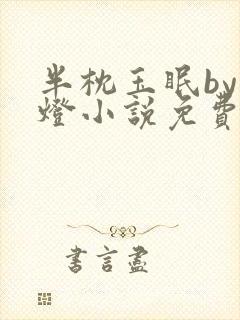 半枕玉眠by
燈小說免費
書言盡